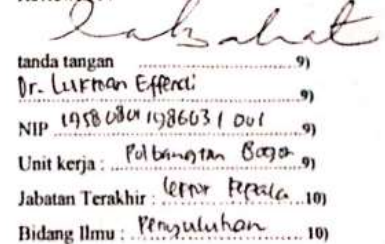 tanda tangan ....................9)
Dr. Lukman Effendi ....................9)
NIP 19580801 198603 1 001 ....................9)
Unit kerja : Polbangtan Bogor 9)
Jabatan Terakhir : Lektor Kepala 10)
Bidang Ilmu : Penyuluhan 10)